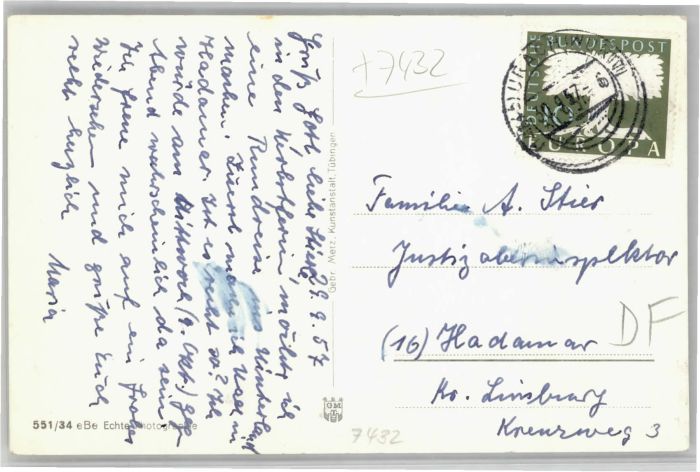 Grüß Gott liebe Stiers! 29.9.57
in den Herbstferien möchte ich
eine Rundreise ins Hinterland
machen. Zuerst nach
Hadamar. Ist es recht so? Ich
würde am Mittwoch (2. Okt.) gegen
Abend wahrscheinlich da sein.
Ich freue mich auf ein frohes
Wiedersehen und grüße Euch
recht herzlich
Maria
+7432
DEUTSCHE BUNDESPOST
10
EUROPA
Familie A. Stier
Justizoberinspektor
(16) Hadamar
Kr. Limburg
Kreuzweg 3
DF
Gebr. Metz, Kunstanstalt, Tübingen
GMT
551/34 eBe Echte Photographie
7432